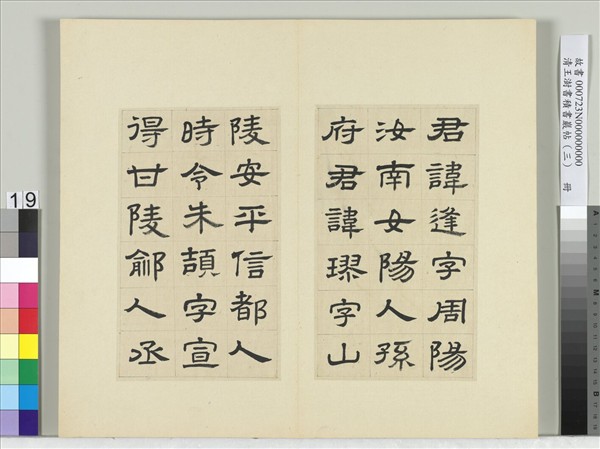 君諱逢字周陽
汝南女陽人孫
府君諱璆字山
陵安平信都人
時令朱頡字宣
得甘陵鄃人丞
故書 000723N000000000
清王澍書積書巖帖（三） 冊
19
A
M
B